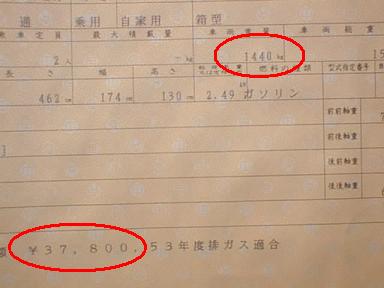 通 乗用 自家用 箱型
乗車定員 最大積載量 車両重量 車両総重
2人 －kg 1440kg 15
長さ 幅 高さ 燃料の種類 型式指定番号
462cm 174cm 130cm 2.49 ガソリン
前前軸重
前後軸重
後前軸重
後後軸重
額 ￥37,800,53年度排ガス適合